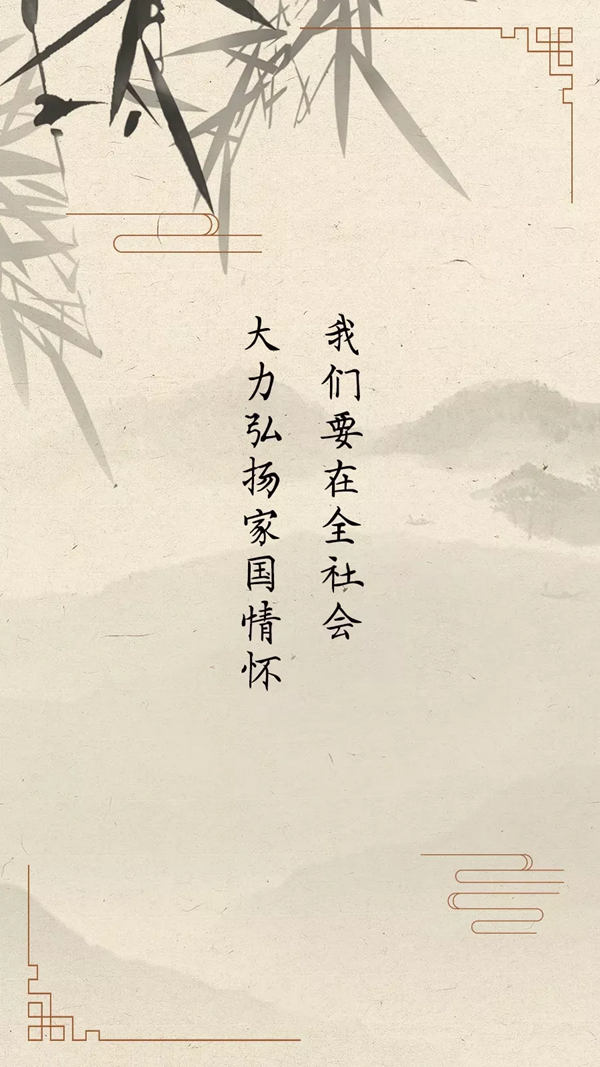 我们要在全社会
大力弘扬家国情怀